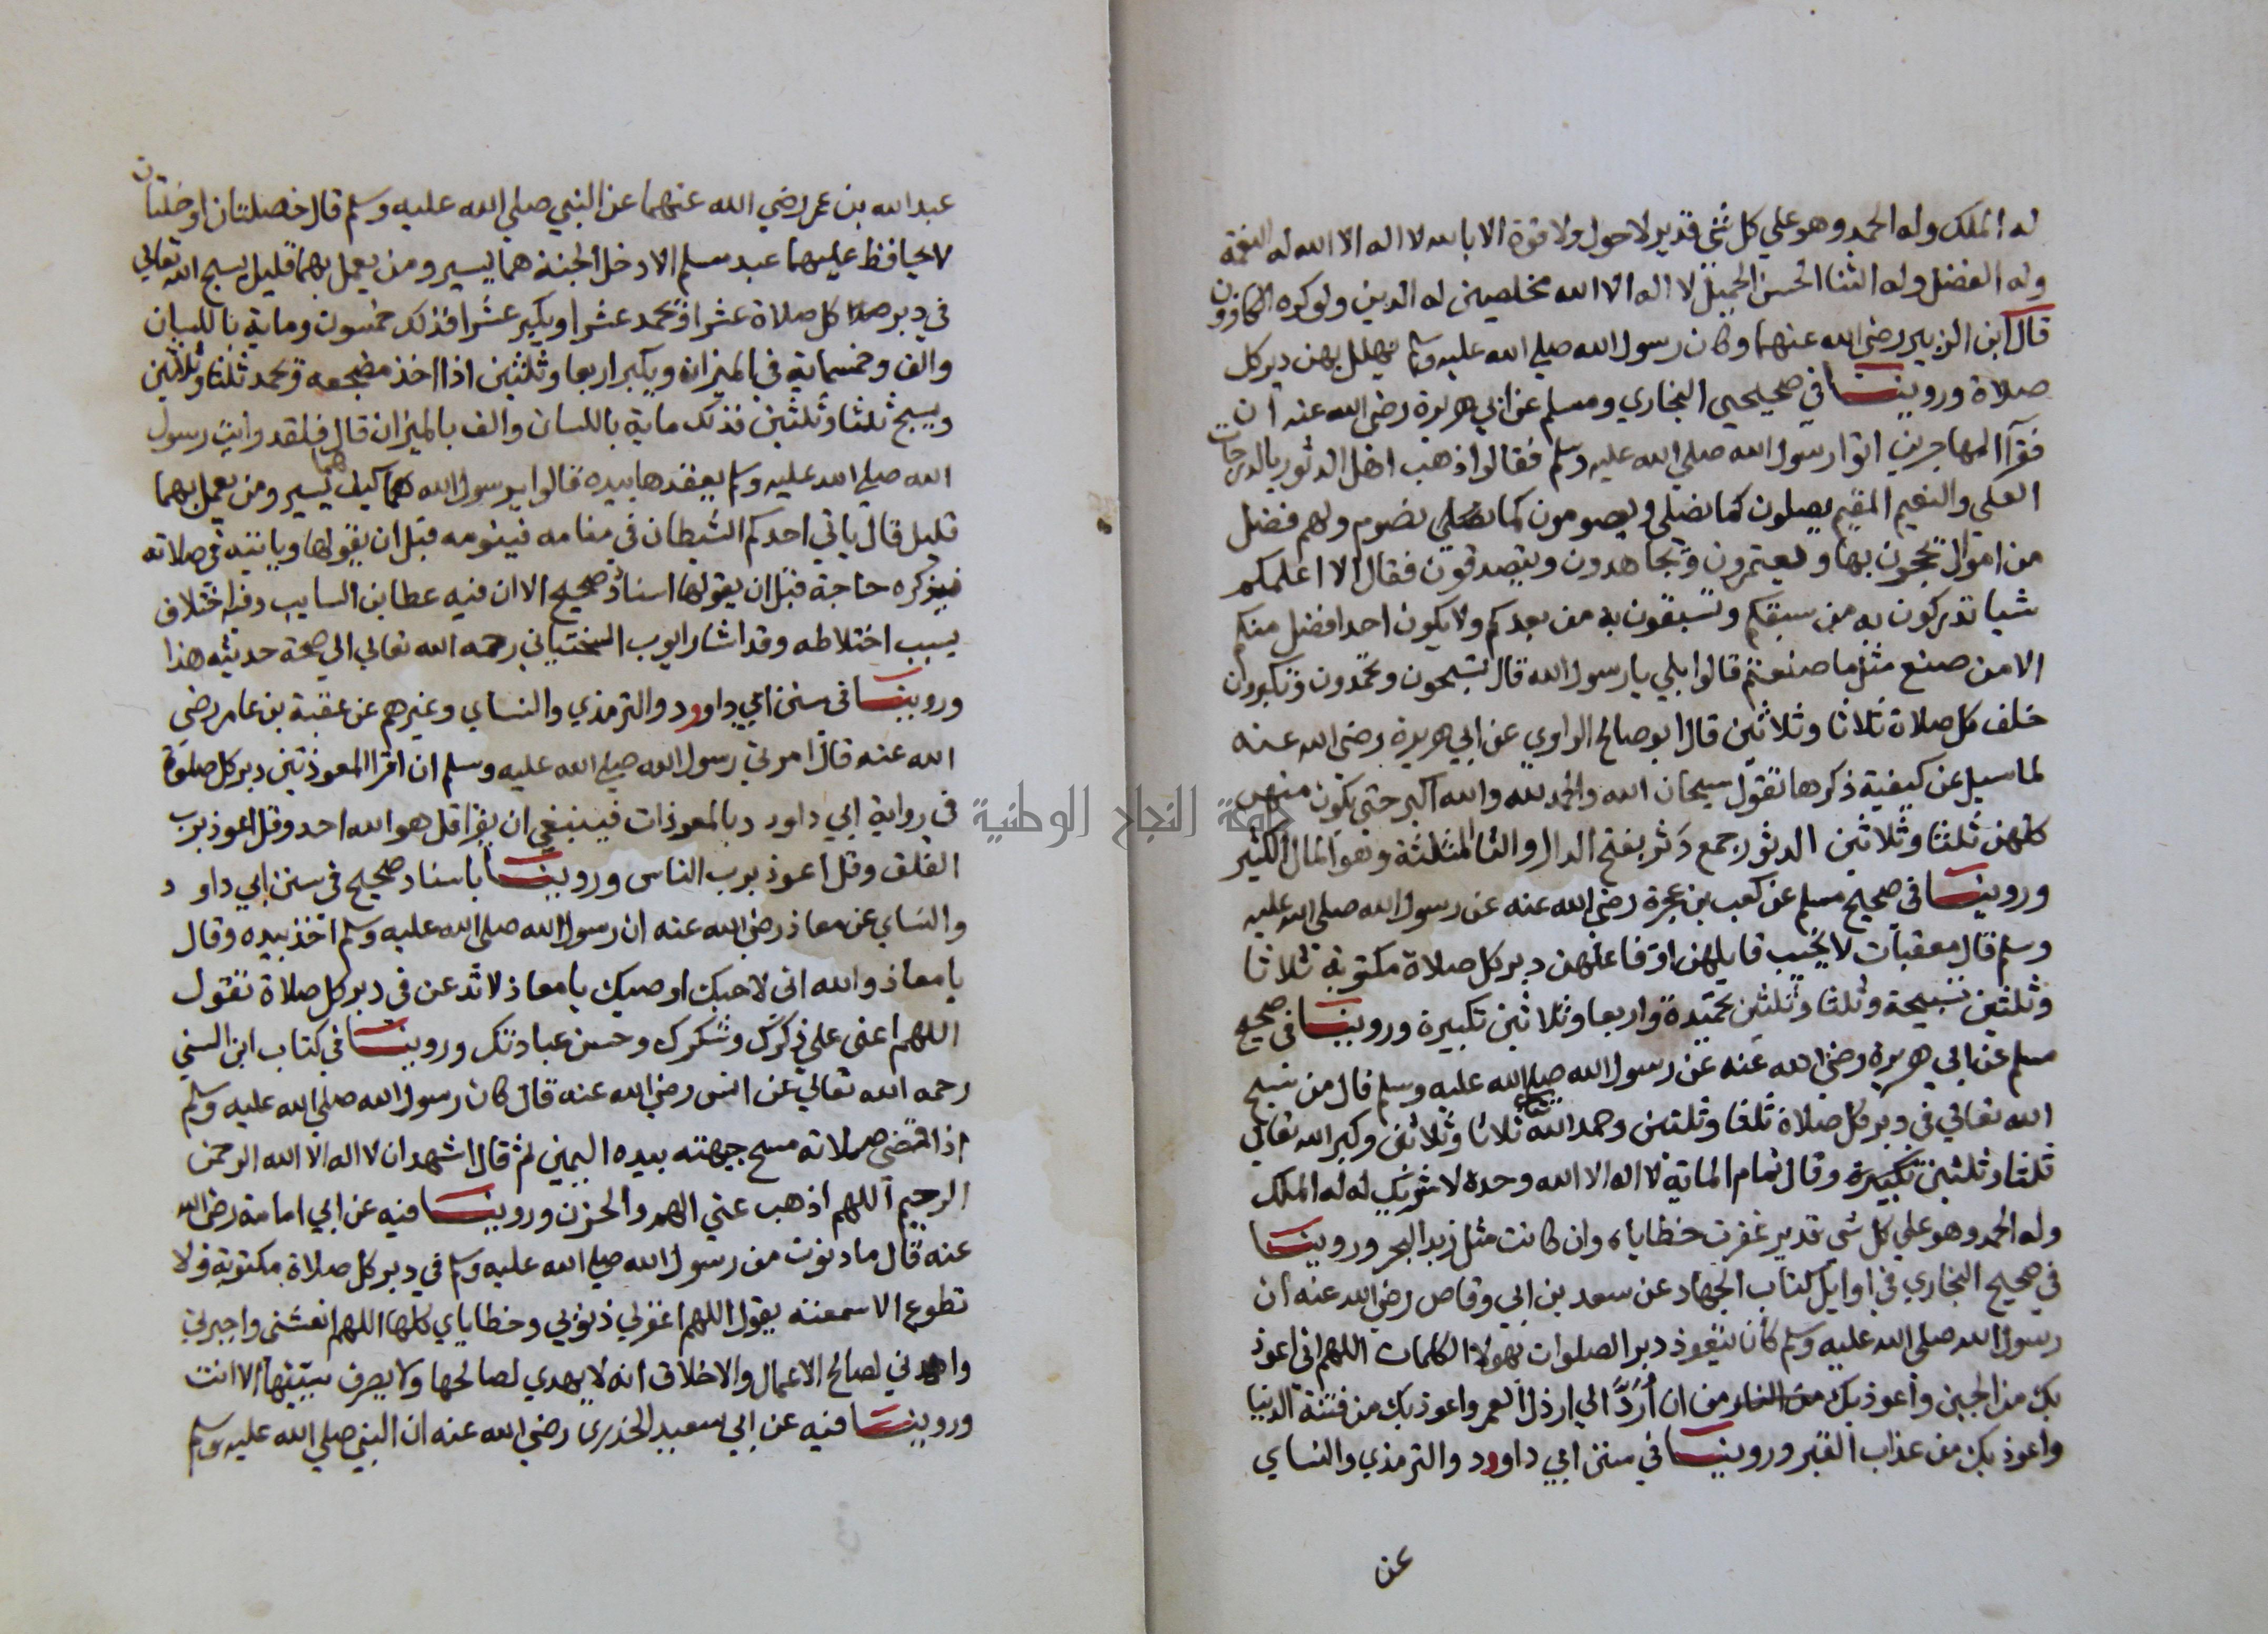 له الملك وله الحمد وهو علي كل شي قدير لا حول ولا قوة الا بالله لا اله الا الله له النعمة
وله الفضل وله الثنا الحسن الجميل لا اله الا الله مخلصين له الدين ولو كره الكافرون
قال ابن الزبير رضي الله عنهما وكان رسول الله صلي الله عليه وسلم يهلل بهن دبر كل
صلاة وروينا في صحيحي البخاري ومسلم عن ابي هريرة رضي الله عنه ان
فقرآ المهاجرين اتوا رسول الله صلي الله عليه وسلم فقالوا ذهب اهل الدثور بالدرجات
العلي والنعيم المقيم يصلون كما نصلي ويصومون كما نصلي نصوم ولهم فضل
من اموال يحجون بها ويعتمرون ويجاهدون ويتصدقون فقال الا اعلمكم
شيا تدركون به من سبقكم وتسبقون به من بعدكم ولا يكون احد افضل منكم
الا من صنع مثل ما صنعتم قالوا بلي يا رسول الله قال تسبحون وتحمدون وتكبرون
خلف كل صلاة ثلاثا وثلاثين قال ابو صالح الراوي عن ابي هريرة رضي الله عنه
لما سيل عن كيفية ذكرها تقول سبحان الله والحمد لله والله اكبر حتي يكون منهن
كلهن ثلثا وثلاثين الدثور جمع دثر بفتح الدال والثا المثلثة وهو المال الكثير
وروينا في صحيح مسلم عن كعب بن عجرة رضي الله عنه عن رسول الله صلي الله عليه
وسلم قال معقبات لا يخيب قايلهن او فاعلهن دبر كل صلاة مكتوبة ثلاثا
وثلثين تسبيحة وثلثا وثلثين تحميدة واربعا وثلاثين تكبيرة وروينا في صحيح
مسلم عن ابي هريرة رضي الله عنه عن رسول الله صلي الله عليه وسلم قال من سبح
الله تعالي في دبر كل صلاة ثلثا وثلثين وحمد الله تعالي ثلاثا وثلاثين وكبر الله تعالي
ثلثا وثلثين تكبيرة وقال تمام الماية لا اله الا الله وحده لا شريك له له الملك
وله الحمد وهو علي كل شي قدير غفرت خطاياه وان كانت مثل زبد البحر وروينا
في صحيح البخاري في اوايل كتاب الجهاد عن سعد بن ابي وقاص رضي الله عنه ان
رسول الله صلي الله عليه وسلم كان يتعوذ دبر الصلوات بهولا الكلمات اللهم اني اعوذ
بك من الجبن واعوذ بك من ان اُرَدَّ الي ارذل العمر واعوذ بك من فتنة الدنيا
واعوذ بك من عذاب القبر وروينا في سنن ابي داود والترمذي والنساي
عن
عبد الله بن عمر رضي الله عنهما عن النبي صلي الله عليه وسلم قال خصلتان او خلتان
لا يحافظ عليهما عبد مسلم الا دخل الجنة هما يسير ومن يعمل بهما قليل يسبح الله تعالي
في دبر كل صلاة عشرا ويحمد عشرا ويكبر عشرا فذلك خمسون وماية باللسان
والف وخمسماية في الميزان ويكبر اربعا وثلثين اذا اخذ مضجعه ويحمد ثلثا وثلاثين
ويسبح ثلثا وثلثين فذلك ماية باللسان والف بالميزان قال فلقد رايت رسول
الله صلي الله عليه وسلم يعقدها بيده قالوا يرسول الله كيف هما يسير ومن يعمل بهما
قليل قال ياتي احدكم الشيطان في منامه فينومه قبل ان يقولها وياتيه في صلاته
فيذكره حاجة قبل ان يقولها اسناده صحيح الا ان فيه عطا بن السايب وفيه اختلاف
بسبب اختلاطه وقد اشار ايوب السختياني رحمه الله تعالي الي صحة حديثه هذا
وروينا في سنن ابي داود والترمذي والنساي وغيرهم عن عقبة بن عامر رضي
الله عنه قال امرني رسول الله صلي الله عليه وسلم ان اقرا المعوذتين دبر كل صلوة
في رواية ابي داود بالمعوذات فينبغي ان يقرا قل هو الله احد وقل اعوذ برب
الفلق وقل اعوذ برب الناس وروينا باسناد صحيح في سنن ابي داود
والنساي عن معاذ رضي الله عنه ان رسول الله صلي الله عليه وسلم اخذ بيده وقال
يا معاذ والله اني لاحبك اوصيك يا معاذ لا تدعن في دبر كل صلاة تقول
اللهم اعني علي ذكرك وشكرك وحسن عبادتك وروينا في كتاب ابن السني
رحمه الله تعالي عن انس رضي الله عنه قال كان رسول الله صلي الله عليه وسلم
اذا قضي صلاته مسح جبهته بيده اليمين ثم قال اشهد ان لا اله الا الله الرحمن
الرحيم اللهم اذهب عني الهم والحزن وروينا فيه عن ابي امامة رضي الله
عنه قال ما دنوت من رسول الله صلي الله عليه وسلم في دبر كل صلاة مكتوبة ولا
تطوع الا سمعته يقول اللهم اغفر لي ذنوبي وخطاياي كلها اللهم انعشني واجبرني
واهدني لصالح الاعمال والاخلاق انه لا يهدي لصالحها ولا يصرف سيئها الا انت
وروينا فيه عن ابي سعيد الخدري رضي الله عنه ان النبي صلي الله عليه وسلم
جامعة النجاح الوطنية